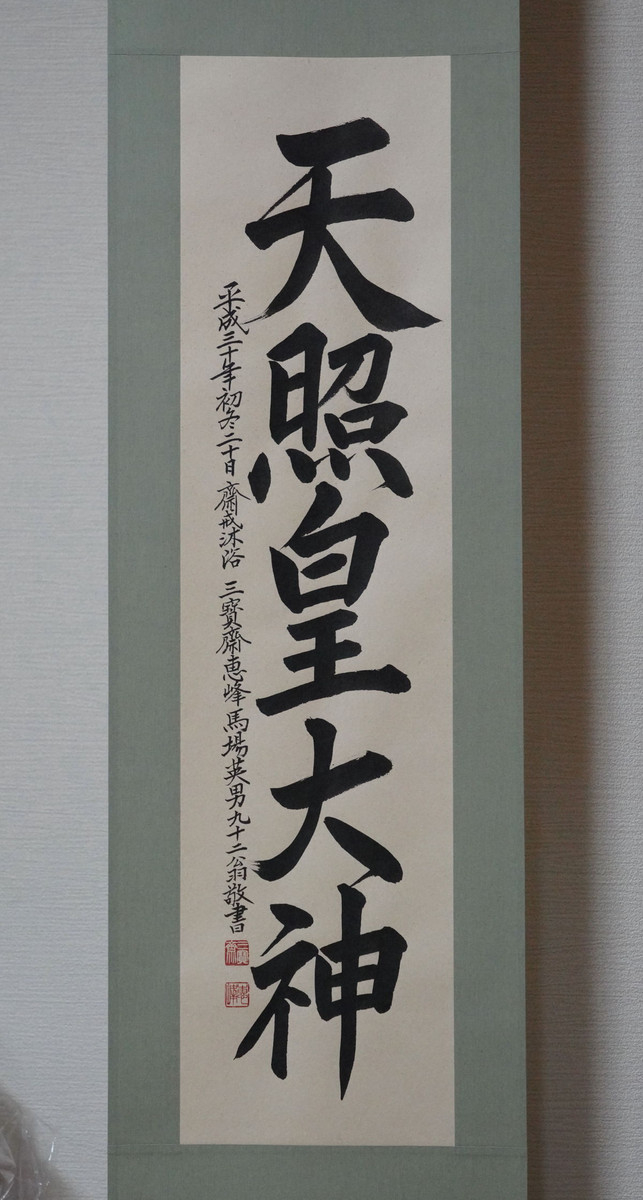 天照皇大神
平成三十年初冬二十日 齋戒沐浴 三寳齋恵峰馬場英男九十二翁敬書